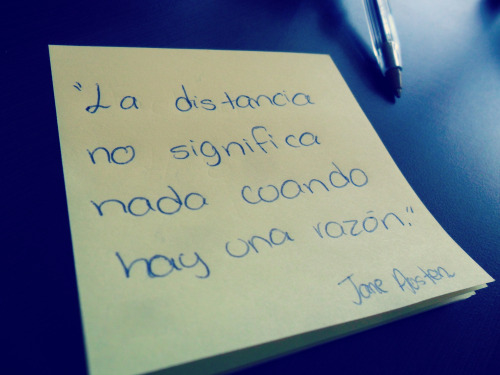 "La distancia
no significa
nada cuando
hay una razón."
Jane Austen